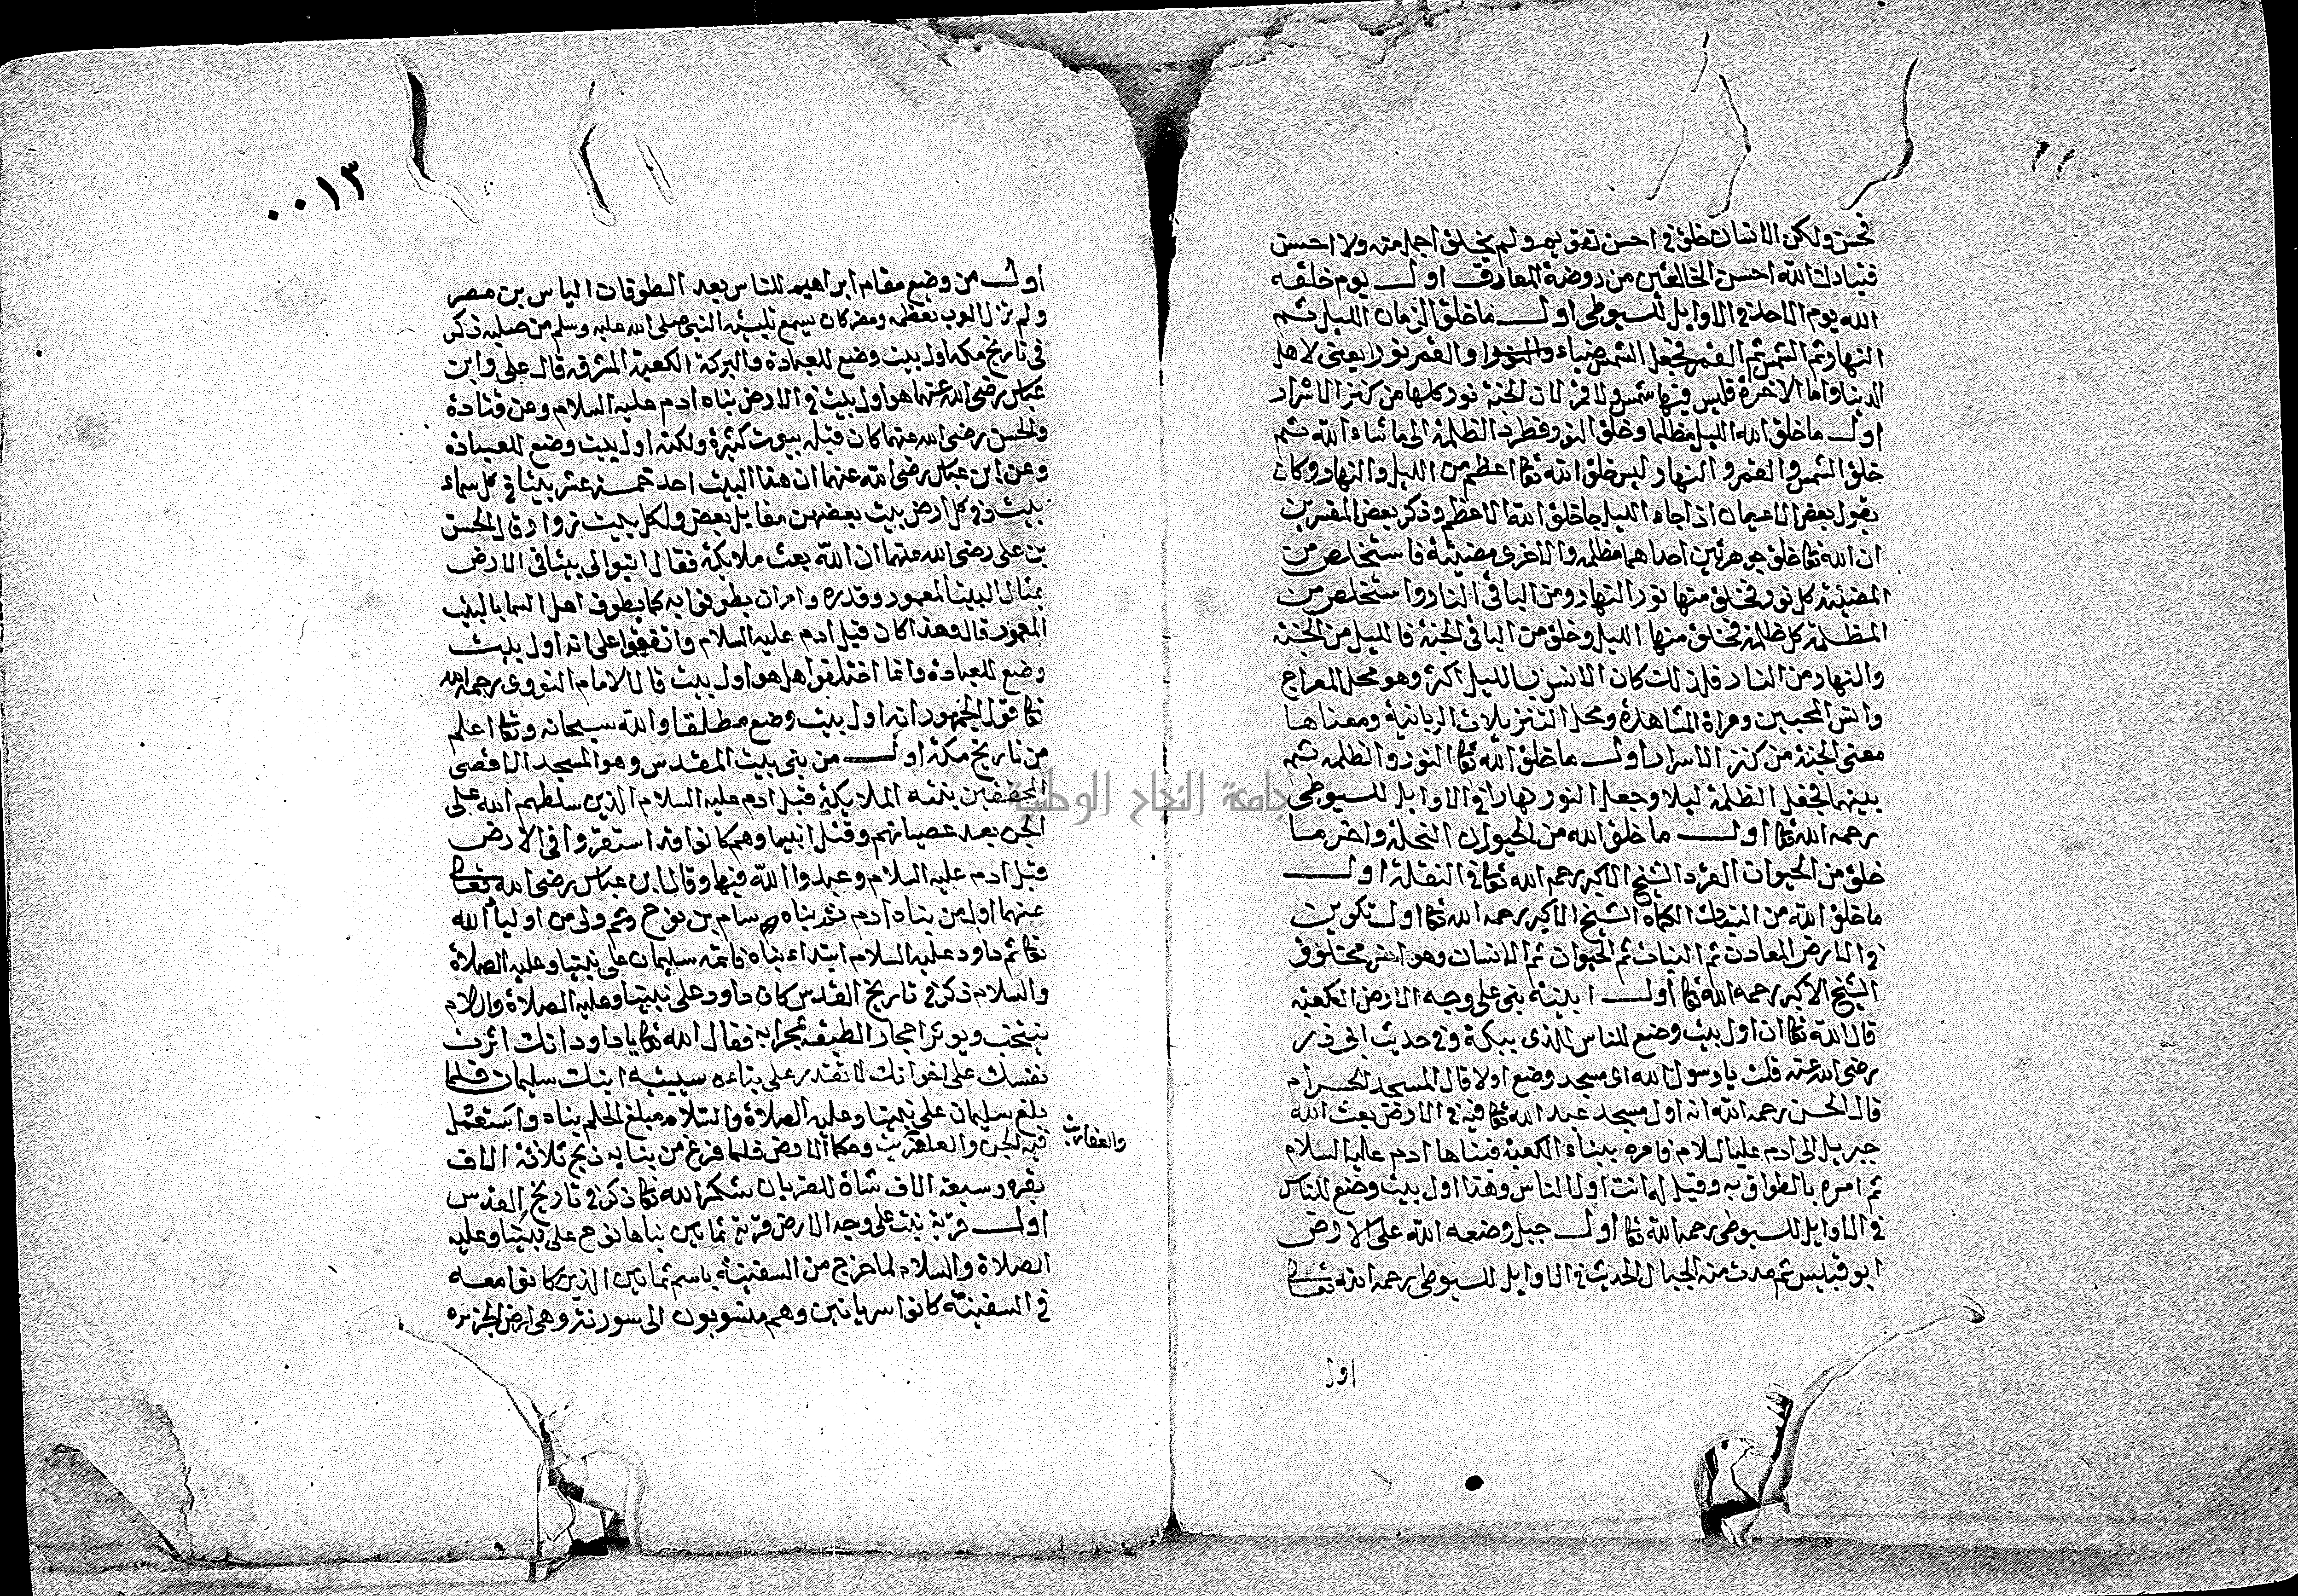 فحسن ولكن الانسان خلق في احسن تقويم ولم يخلق اجمل منه ولا احسن
فتبارك الله احسن الخالقين من روضة المعارف اول يوم خلقه
الله يوم الاحد في الاوايل للسيوطي اول ما خلق الزمان الليل ثم
النهار ثم الشمس ثم القمر فجعل الشمس ضياء والقمر نورا يعني لاهل
الدنيا واما الاخرة فليس فيها شمس ولا قمر لان الجنة نور كلها من كنز الاسرار
اول ما خلق الله الليل مظلما وخلق النور فطرد الظلمة الى ما شاء الله ثم
خلق الشمس والقمر والنهار ليس خلق الله تعا اعظم من الليل والنهار وكان
يقول بعض الاعيان اذا جاء الليل جا خلق الله الاعظم وذكر بعض المفسرين
ان الله تعا خلق جوهرتين احداهما مظلمه والاخرى مضيئة فاستخلص من
المضيئة كل نور فخلق منها نور النهار ومن الباقي النار واستخلص من
المظلمة كل ظلمة فخلق منها الليل وخلق من الباقي الجنة فالليل من الجنة
والنهار من النار فلذلك كان الانس بالليل اكثر وهو محل المعراج
وانس المحبين ومراة المشاهدة ومحل التنزيلات الربانية ومعناها
معنى الجنة من كنز الاسرار اول ما خلق الله تعا النور والظلمه ثم
بينهما فجعل الظلمة ليلا وجعل النور نهارا في الاوايل للسيوطي
رحمه الله تعا اول ما خلق الله من الحيوان النحلة واخر ما
خلق من الحيوان القرد الشيخ الاكبر رحمه الله تعا في النقلة اول
ما خلق الله من النبات الكماه الشيخ الاكبر رحمه الله تعا اول تكوين
في الارض المعادن ثم النبات ثم الحيوان ثم الانسان وهو اخر مخلوق
الشيخ الاكبر رحمه الله تعا اول ابنية بني على وجه الارض الكعبة
قال الله تعا ان اول بيت وضع للناس للذي ببكة وفي حديث ابي ذر
رضي الله عنه قلت يا رسول الله اي مسجد وضع اولا قال المسجد الحرام
قال الحسن رحمه الله انه اول مسجد عبد الله تعا فيه في الارض بعث الله
جبريل الى ادم عليه السلام فامره ببناء الكعبة فبناها ادم عليه السلام
ثم امره بالطواف به وقيل له انت اول الناس وهذا اول بيت وضع للناس
في الاوايل للسيوطي رحمه الله تعا اول جبل وضعه الله على الارض
ابو قبيس ثم مدت منه الجبال الحديث في الاوايل للسيوطي رحمه الله تعا
اول
٠٠١٣
اول من وضع مقام ابراهيم للناس بعد الطوفان الياس بن مضر
ولم تزل العرب تعظمه ومضر كان يسمع تلبية النبي صلى الله عليه وسلم من صلبه ذكر
في تاريخ مكه اول بيت وضع للعبادة والبركة الكعبة المشرفه قال علي وابن
عباس رضي الله عنهما هو اول بيت في الارض بناه ادم عليه السلام وعن قتادة
والحسن رضي الله عنهما كان قبله بيوت كثيرة ولكنه اول بيت وضع للعبادة
وعن ابن عباس رضي الله عنهما ان هذا البيت احد خمسة عشر بيتا في كل سماء
بيت وفي كل ارض بيت بعضهن مقابل بعض ولكل بيت زوار قال الحسن
بن علي رضي الله عنهما ان الله بعث ملايكة فقال ابنوا لي بيتا في الارض
بمثال البيت المعمور وقدره وامر ان يطوفوا به كما يطوف اهل السما بالبيت
المعمور قال وهذا كان قبل ادم عليه السلام واتفقوا على انه اول بيت
وضع للعبادة وانما اختلفوا هل هو اول بيت قال الامام النووي رحمه الله
تعا قول الجمهور انه اول بيت وضع مطلقا والله سبحانه وتعا اعلم
من تاريخ مكة اول من بنى بيت المقدس وهو المسجد الاقصى
المحققين بنته الملايكة قبل ادم عليه السلام الذين سلطهم الله على
الجن بعد عصيانهم وقتل انبيما وهم كانوا قد استقروا في الارض
قبل ادم عليه السلام وعبدوا الله فيها وقال ابن عباس رضي الله تعا
عنهما اول من بناه ادم ثم بناه سام بن نوح وهم ولي من اوليا الله
تعا ثم داود عليه السلام ابتداء بناه فاتمه سليمان على نبينا وعليه الصلاة
والسلام ذكر في تاريخ القدس كان داود على نبينا وعليه الصلاة والسلام
ينتخب ويوثر احجار الطيفه لمحرابه فقال الله تعا يا داود انك اثرت
نفسك على اخوانك لا تقدر على بناءه سيبنيه ابنك سليمان فلما
بلغ سليمان على نبينا وعليه الصلاة والسلام مبلغ الحلم بناه واستعمل
فيه الجن والعفاريت وحكما الارض فلما فرغ من بنايه ذبح ثلاثة الاف
والعفاريت
بقره وسبعة الاف شاة للقربان شكرا لله تعا ذكر في تاريخ القدس
اول قرية بنيت على وجه الارض قرية ثمانين بناها نوح على نبينا وعليه
الصلاة والسلام لما خرج من السفينة باسم ثمانين الذين كانوا معه
في السفينة كانوا سريانين وهم منسوبون الى سورنتر وهي ارض الجزيره
جامعة النجاح الوطنية